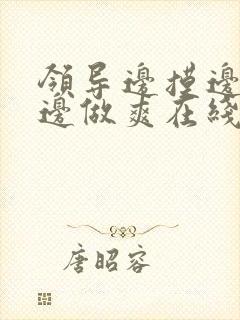 領导邊摸邊
邊做爽在綫
唐昭容